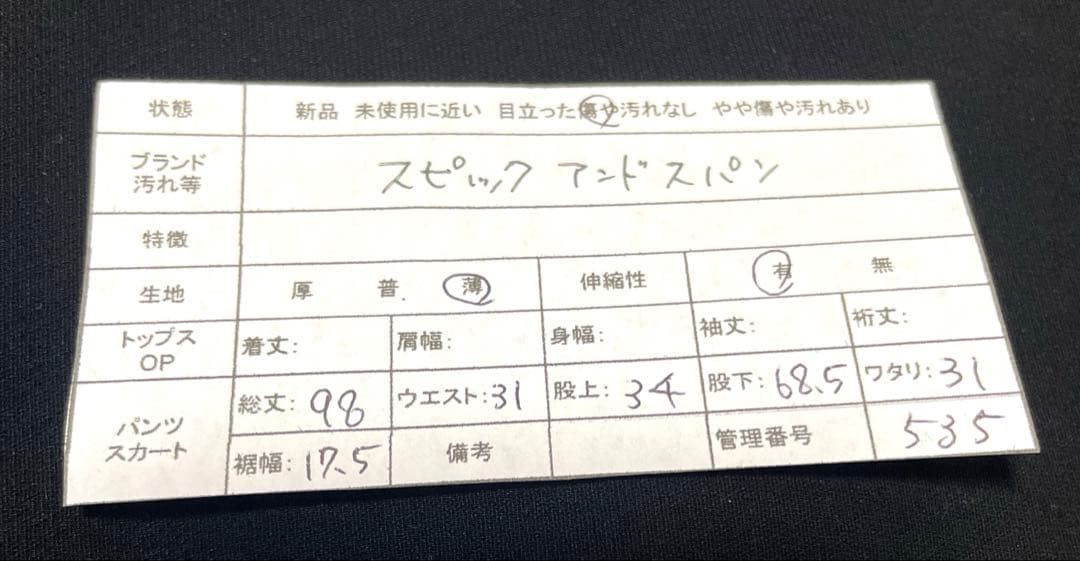 状態 新品 未使用に近い 目立った傷や汚れなし やや傷や汚れあり
ブランド 汚れ等 スピック アンド スパン
特徴
生地 厚 普. 薄 伸縮性 有 無
トップス OP 着丈: 肩幅: 身幅: 袖丈: 裄丈:
パンツ スカート 総丈: 98 ウエスト: 31 股上: 34 股下: 68.5 ワタリ: 31
裾幅: 17.5 備考 管理番号 535